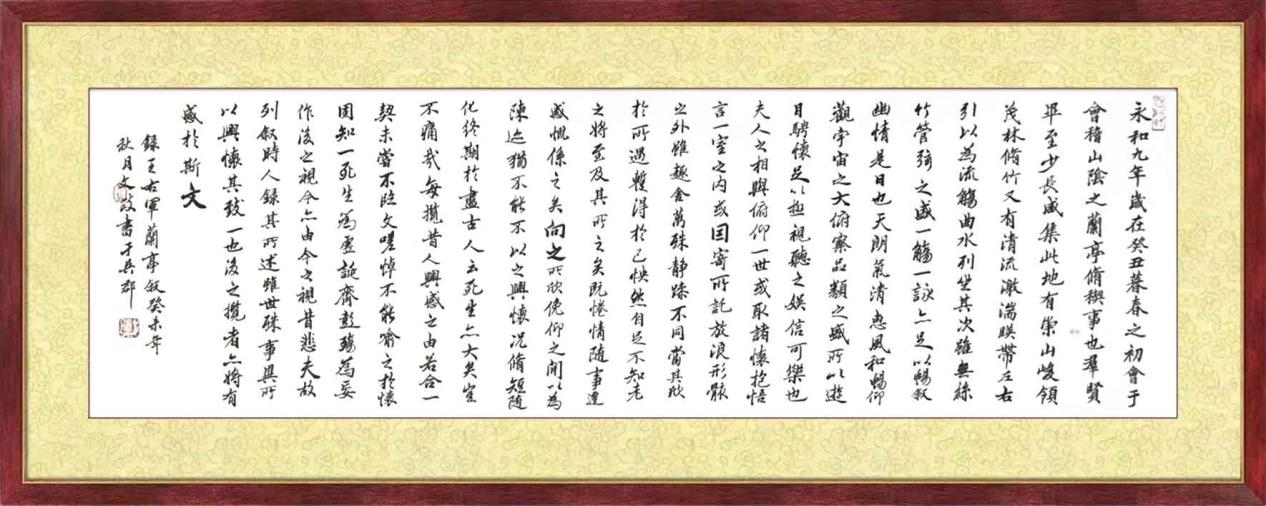 永和九年歲在癸丑暮春之初會于
會稽山陰之蘭亭脩禊事也羣賢
畢至少長咸集此地有崇山峻領
茂林脩竹又有清流激湍暎帶左右
引以為流觴曲水列坐其次雖無絲
竹管弦之盛一觴一詠亦足以暢敘
幽情是日也天朗氣清惠風和暢仰
觀宇宙之大俯察品類之盛所以遊
目騁懷足以極視聽之娛信可樂也
夫人之相與俯仰一世或取諸懷抱悟
言一室之內或因寄所託放浪形骸
之外雖趣舍萬殊靜躁不同當其欣
於所遇暫得於己怏然自足不知老
之將至及其所之矣既惓情隨事遷
感慨係之矣向之所欣俛仰之間以為
陳迹猶不能不以之興懷況脩短隨
化終期於盡古人云死生亦大矣豈
不痛哉每攬昔人興感之由若合一
契未嘗不臨文嗟悼不能喻之於懷
固知一死生為虛誕齊彭殤為妄
作後之視今亦由今之視昔悲夫故
列敘時人錄其所述雖世殊事異所
以興懷其致一也後之攬者亦將有
感於斯文
錄王右軍蘭亭敘癸未年
秋月文
書于吳郡